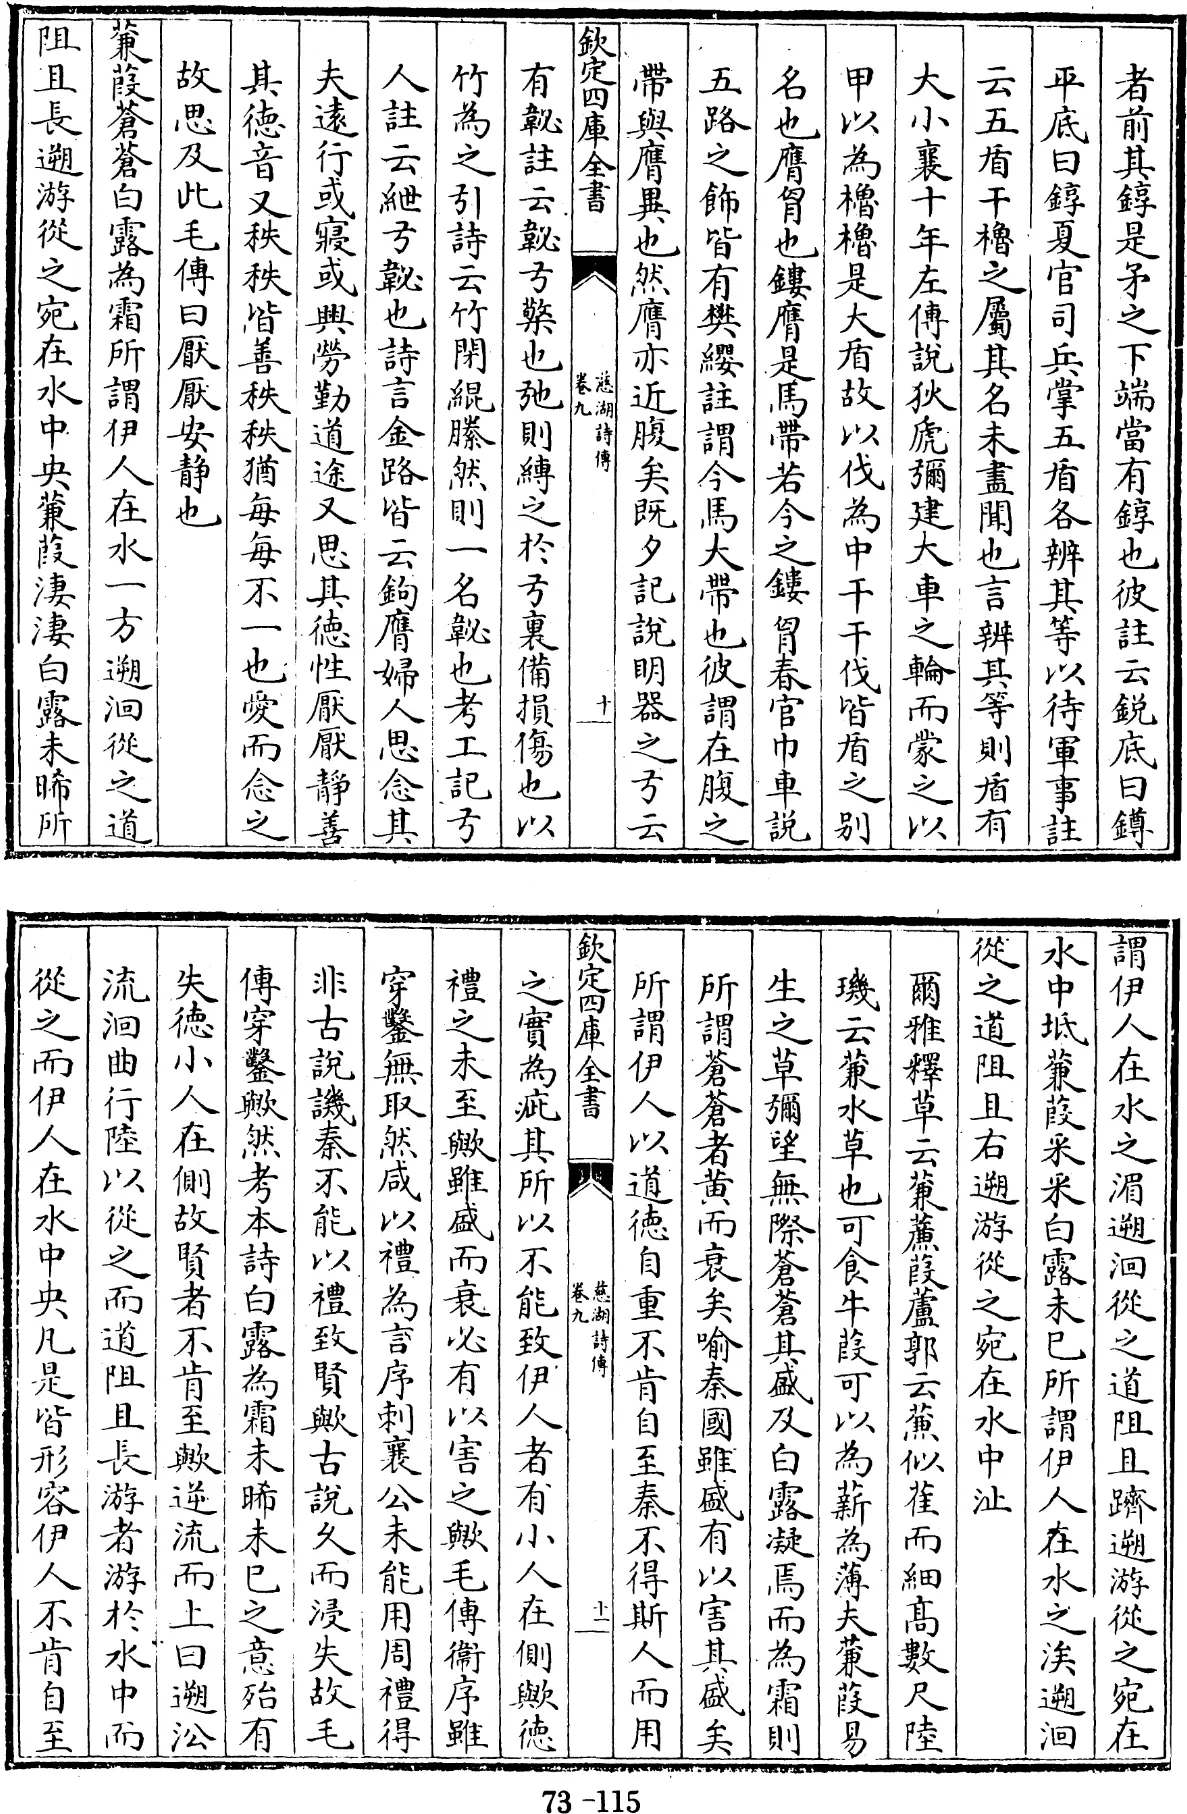 者前其錞是矛之下端當有錞也彼註云鋭底曰鐏
平底曰錞夏官司兵掌五盾各辨其等以待軍事註
云五盾干櫓之屬其名未盡聞也言辨其等則盾有
大小襄十年左傳說狄虒彌建大車之輪而蒙之以
甲以為櫓櫓是大盾故以伐為中干干伐皆盾之別
名也膺胷也鏤膺是馬帶若今之鏤胷春官巾車說
五路之飾皆有樊纓註謂今馬大帶也彼謂在腹之
帶與膺異也然膺亦近腹矣既夕記說明器之弓云
欽定四庫全書
慈湖詩傳
卷九
十
有䪐註云䪐弓檠也弛則縛之於弓裏備損傷也以
竹為之引詩云竹閉緄縢然則一名䪐也考工記弓
人註云紲弓䪐也詩言金路皆云鉤膺婦人思念其
夫遠行或寢或興勞勤道途又思其德性厭厭靜善
其德音又秩秩皆善秩秩猶每每不一也愛而念之
故思及此毛傳曰厭厭安靜也
蒹葭蒼蒼白露為霜所謂伊人在水一方遡洄從之道
阻且長遡游從之宛在水中央蒹葭淒淒白露未晞所
謂伊人在水之湄遡洄從之道阻且躋遡游從之宛在
水中坻蒹葭采采白露未已所謂伊人在水之涘遡洄
從之道阻且右遡游從之宛在水中沚
爾雅釋草云蒹薕葭蘆郭云薕似萑而細高數尺陸
璣云蒹水草也可食牛葭可以為薪為薄夫蒹葭易
生之草彌望無際蒼蒼其盛及白露凝焉而為霜則
所謂蒼蒼者黄而衰矣喻秦國雖盛有以害其盛矣
所謂伊人以道德自重不肯自至秦不得斯人而用
欽定四庫全書
慈湖詩傳
卷九
十一
之實為疵其所以不能致伊人者有小人在側歟德
禮之未至歟雖盛而衰必有以害之歟毛傳衞序雖
穿鑿無取然咸以禮為言序刺襄公未能用周禮得
非古說譏秦不能以禮致賢歟古說久而浸失故毛
傳穿鑿歟然考本詩白露為霜未晞未已之意殆有
失德小人在側故賢者不肯至歟逆流而上曰遡㳂
流洄曲行陸以從之而道阻且長游者游於水中而
從之而伊人在水中央凡是皆形容伊人不肯自至
73-115